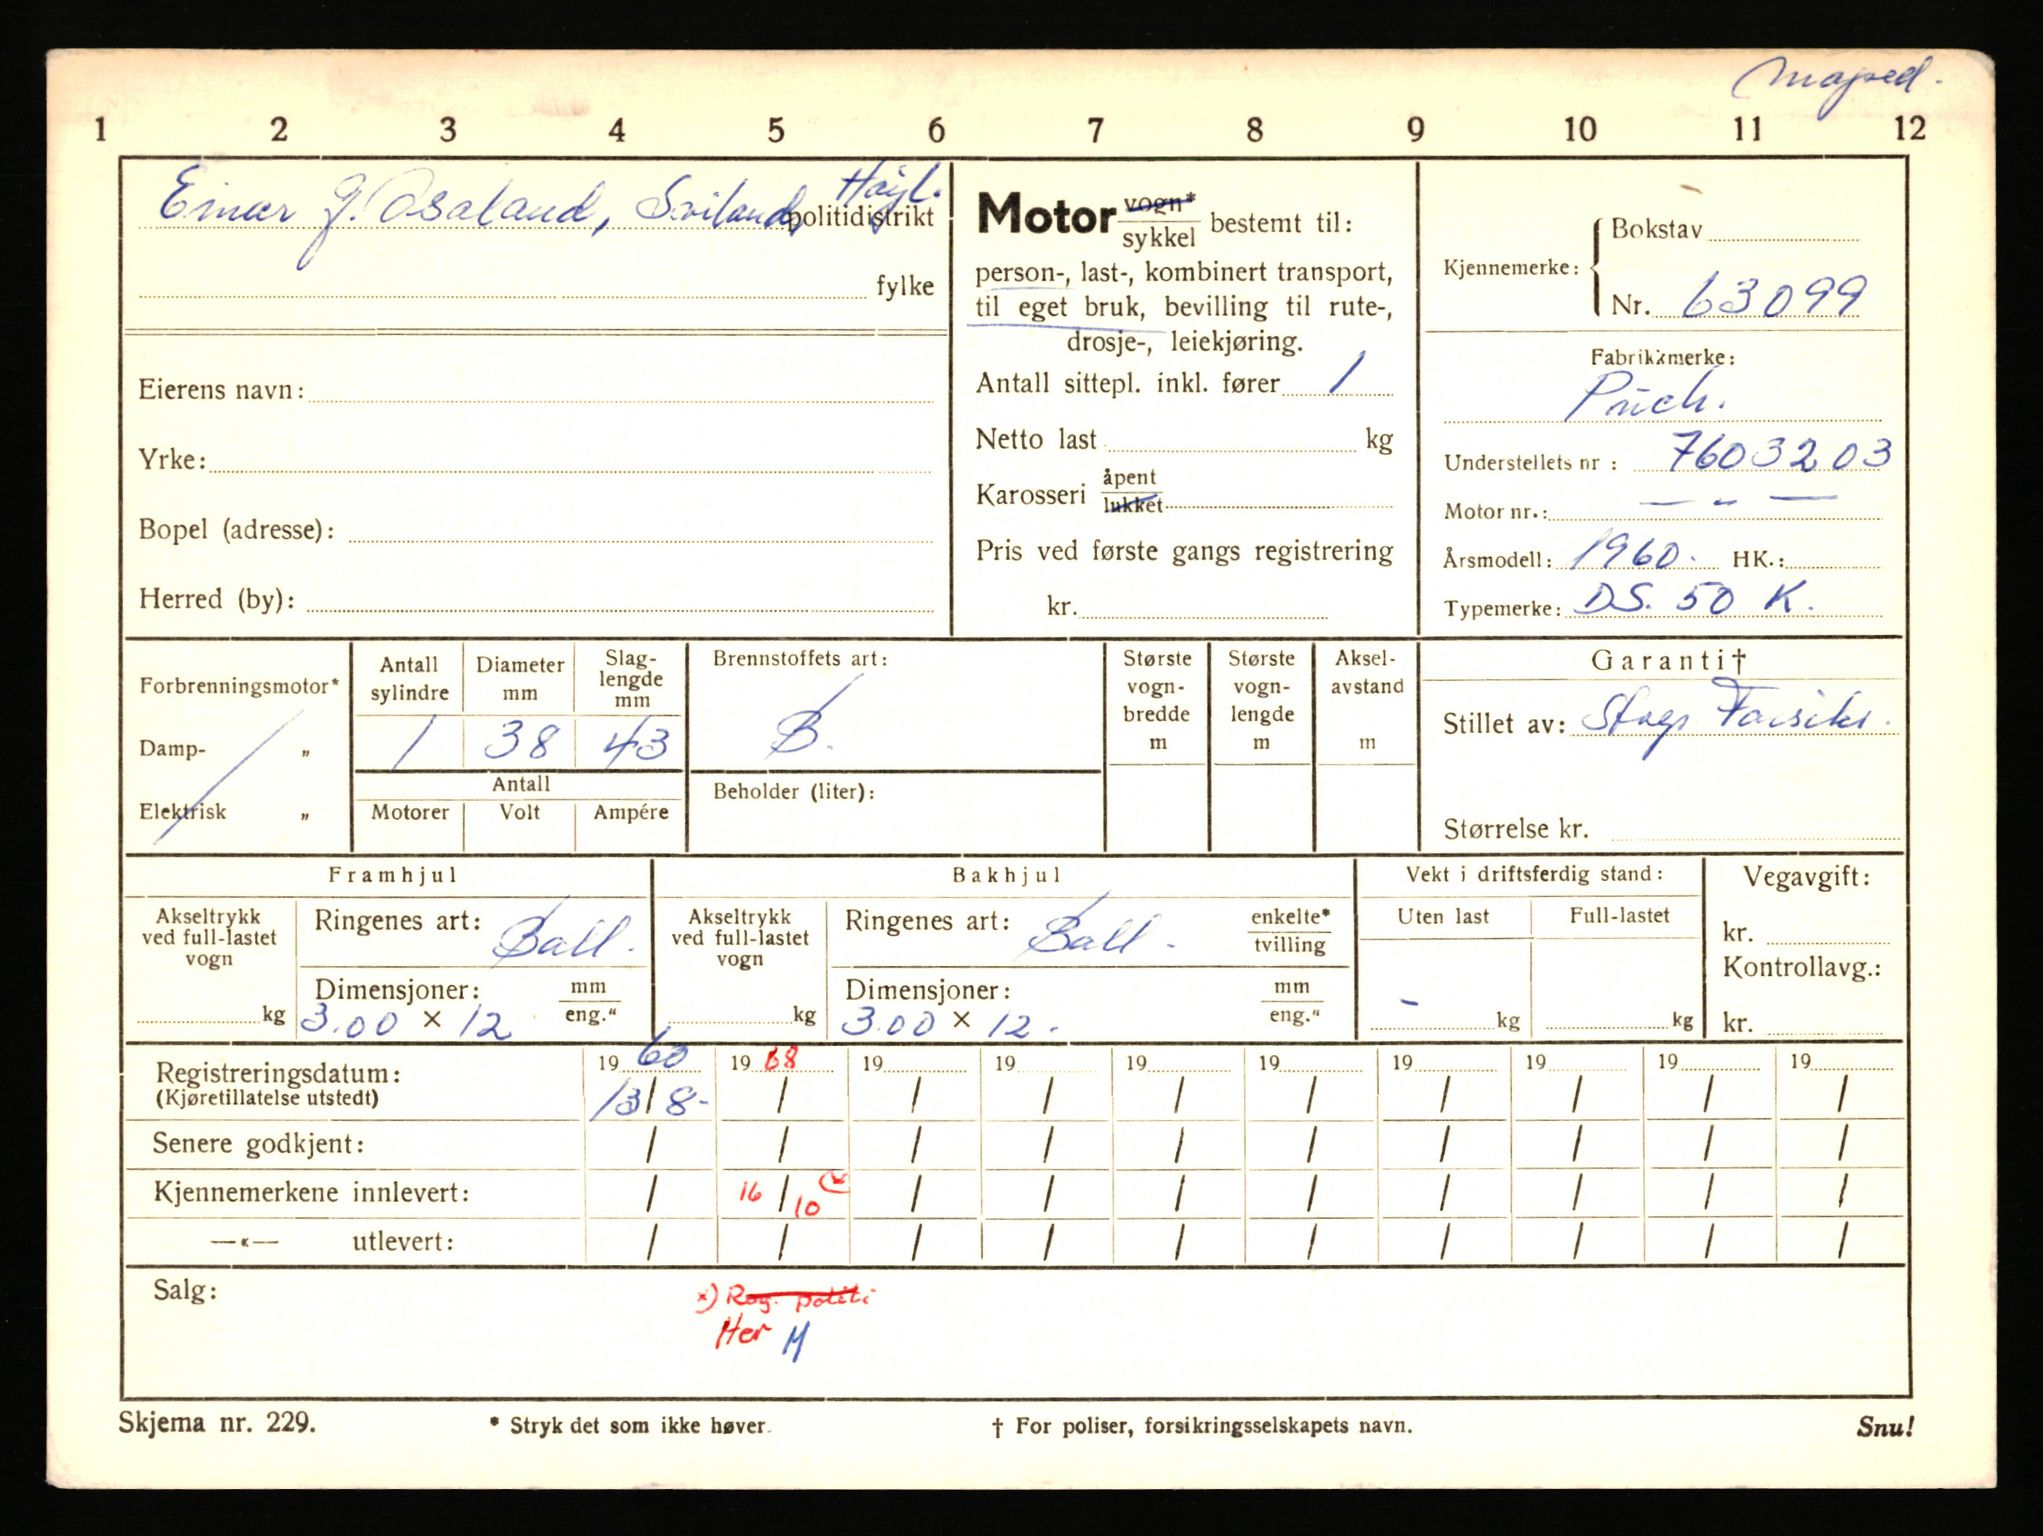 Moped.
1 2 3 4 5 6 7 8 9 10 11 12
Einar G. Osaland, Sviland, Høyl.
politidistrikt
fylke
Eierens navn:
Yrke:
Bopel (adresse):
Herred (by):
Motor vogn* / sykkel bestemt til:
person-, last-, kombinert transport,
til eget bruk, bevilling til rute-,
drosje-, leiekjøring.
Antall sittepl. inkl. fører 1
Netto last kg
Karosseri åpent / lukket
Pris ved første gangs registrering
kr.
Kjennemerke: Bokstav
Nr. 63099
Fabrikkmerke:
Puch.
Understellets nr : 7603203
Motor nr.: — „ —
Årsmodell: 1960. HK.:
Typemerke: DS. 50 K.
Forbrenningsmotor*
Damp- „
Elektrisk „
Antall sylindre Diameter mm Slag-lengde mm
1 38 43
Antall
Motorer Volt Ampére
Brennstoffets art:
B.
Beholder (liter):
Største vogn-bredde m
Største vogn-lengde m
Aksel-avstand m
Garanti†
Stillet av:
Størrelse kr.
Framhjul
Akseltrykk ved full-lastet vogn kg
Ringenes art: Ball.
Dimensjoner: mm / eng."
3.00 × 12
Bakhjul
Akseltrykk ved full-lastet vogn kg
Ringenes art: Ball. enkelte* / tvilling
Dimensjoner: mm / eng."
3.00 × 12.
Vekt i driftsferdig stand:
Uten last Full-lastet
- kg kg
Vegavgift:
kr.
Kontrollavg.:
kr.
19 60 19 68 19 19 19 19 19 19 19 19
Registreringsdatum: 13/8- / / / / / / / / /
(Kjøretillatelse utstedt)
Senere godkjent: / / / / / / / / / /
Kjennemerkene innlevert: / 16/10 x) / / / / / / / /
—«— utlevert: / / / / / / / / / /
Salg:
x) Rog. politi
Her M
Skjema nr. 229. * Stryk det som ikke høver. † For poliser, forsikringsselskapets navn. Snu!